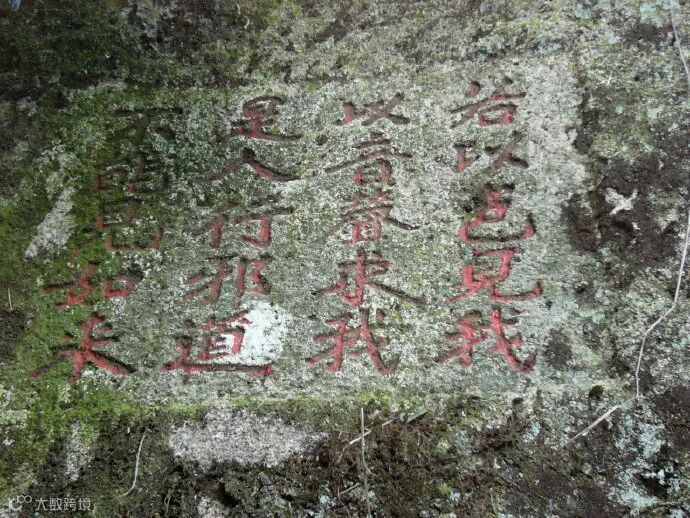 若以色見我
以音聲求我
是人行邪道
不能見如来
大數跨境